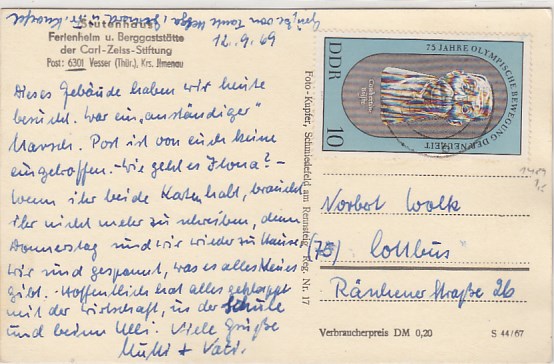 Grüße von Tante Helga, Gerhard u. Fr. Knorpel
Stutenhaus
Ferienheim u. Berggaststätte
der Carl-Zeiss-Stiftung
Post: 6301 Vesser (Thür.), Krs. Jlmenau
12.9.69
Dieses Gebäude haben wir heute
besucht. War ein „anständiger"
Marsch. Post ist von euch keine
eingetroffen. – Wie geht es Ilona? –
Wenn ihr beide Karten habt, braucht
ihr nicht mehr zu schreiben, denn
Donnerstag sind wir wieder zu Hause.
Wir sind gespannt, was es alles Neues
gibt. – Hoffentlich hat alles geklappt
mit der Wirtschaft, in der Schule
und beim Ulli. Viele Grüße
Mutti + Vati.
Foto-Kupfer, Schmiedefeld am Rennsteig Reg. Nr. 17
DDR
75 JAHRE OLYMPISCHE BEWEGUNG DER NEUZEIT
10
Norbert Wolk
(75) Cottbus
Ränhener Straße 26
Verbraucherpreis DM 0,20
S 44/67